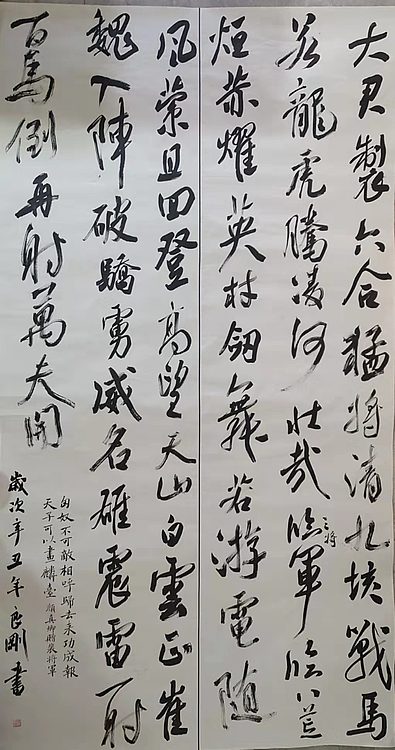 大君製六合猛將清九垓戰馬
若龍虎騰凌何壯哉臨軍臨八荒
將
烜赫耀英材劒舞若游電随
風縈且回登高望天山白雲正崔
巍入陣破驕虜威名雄震雷一射
百馬倒再射萬夫開
匈奴不可敵相呼歸去来功成報
天子可以畫麟臺 顔真卿贈裴將軍
歲次辛丑年良剛書